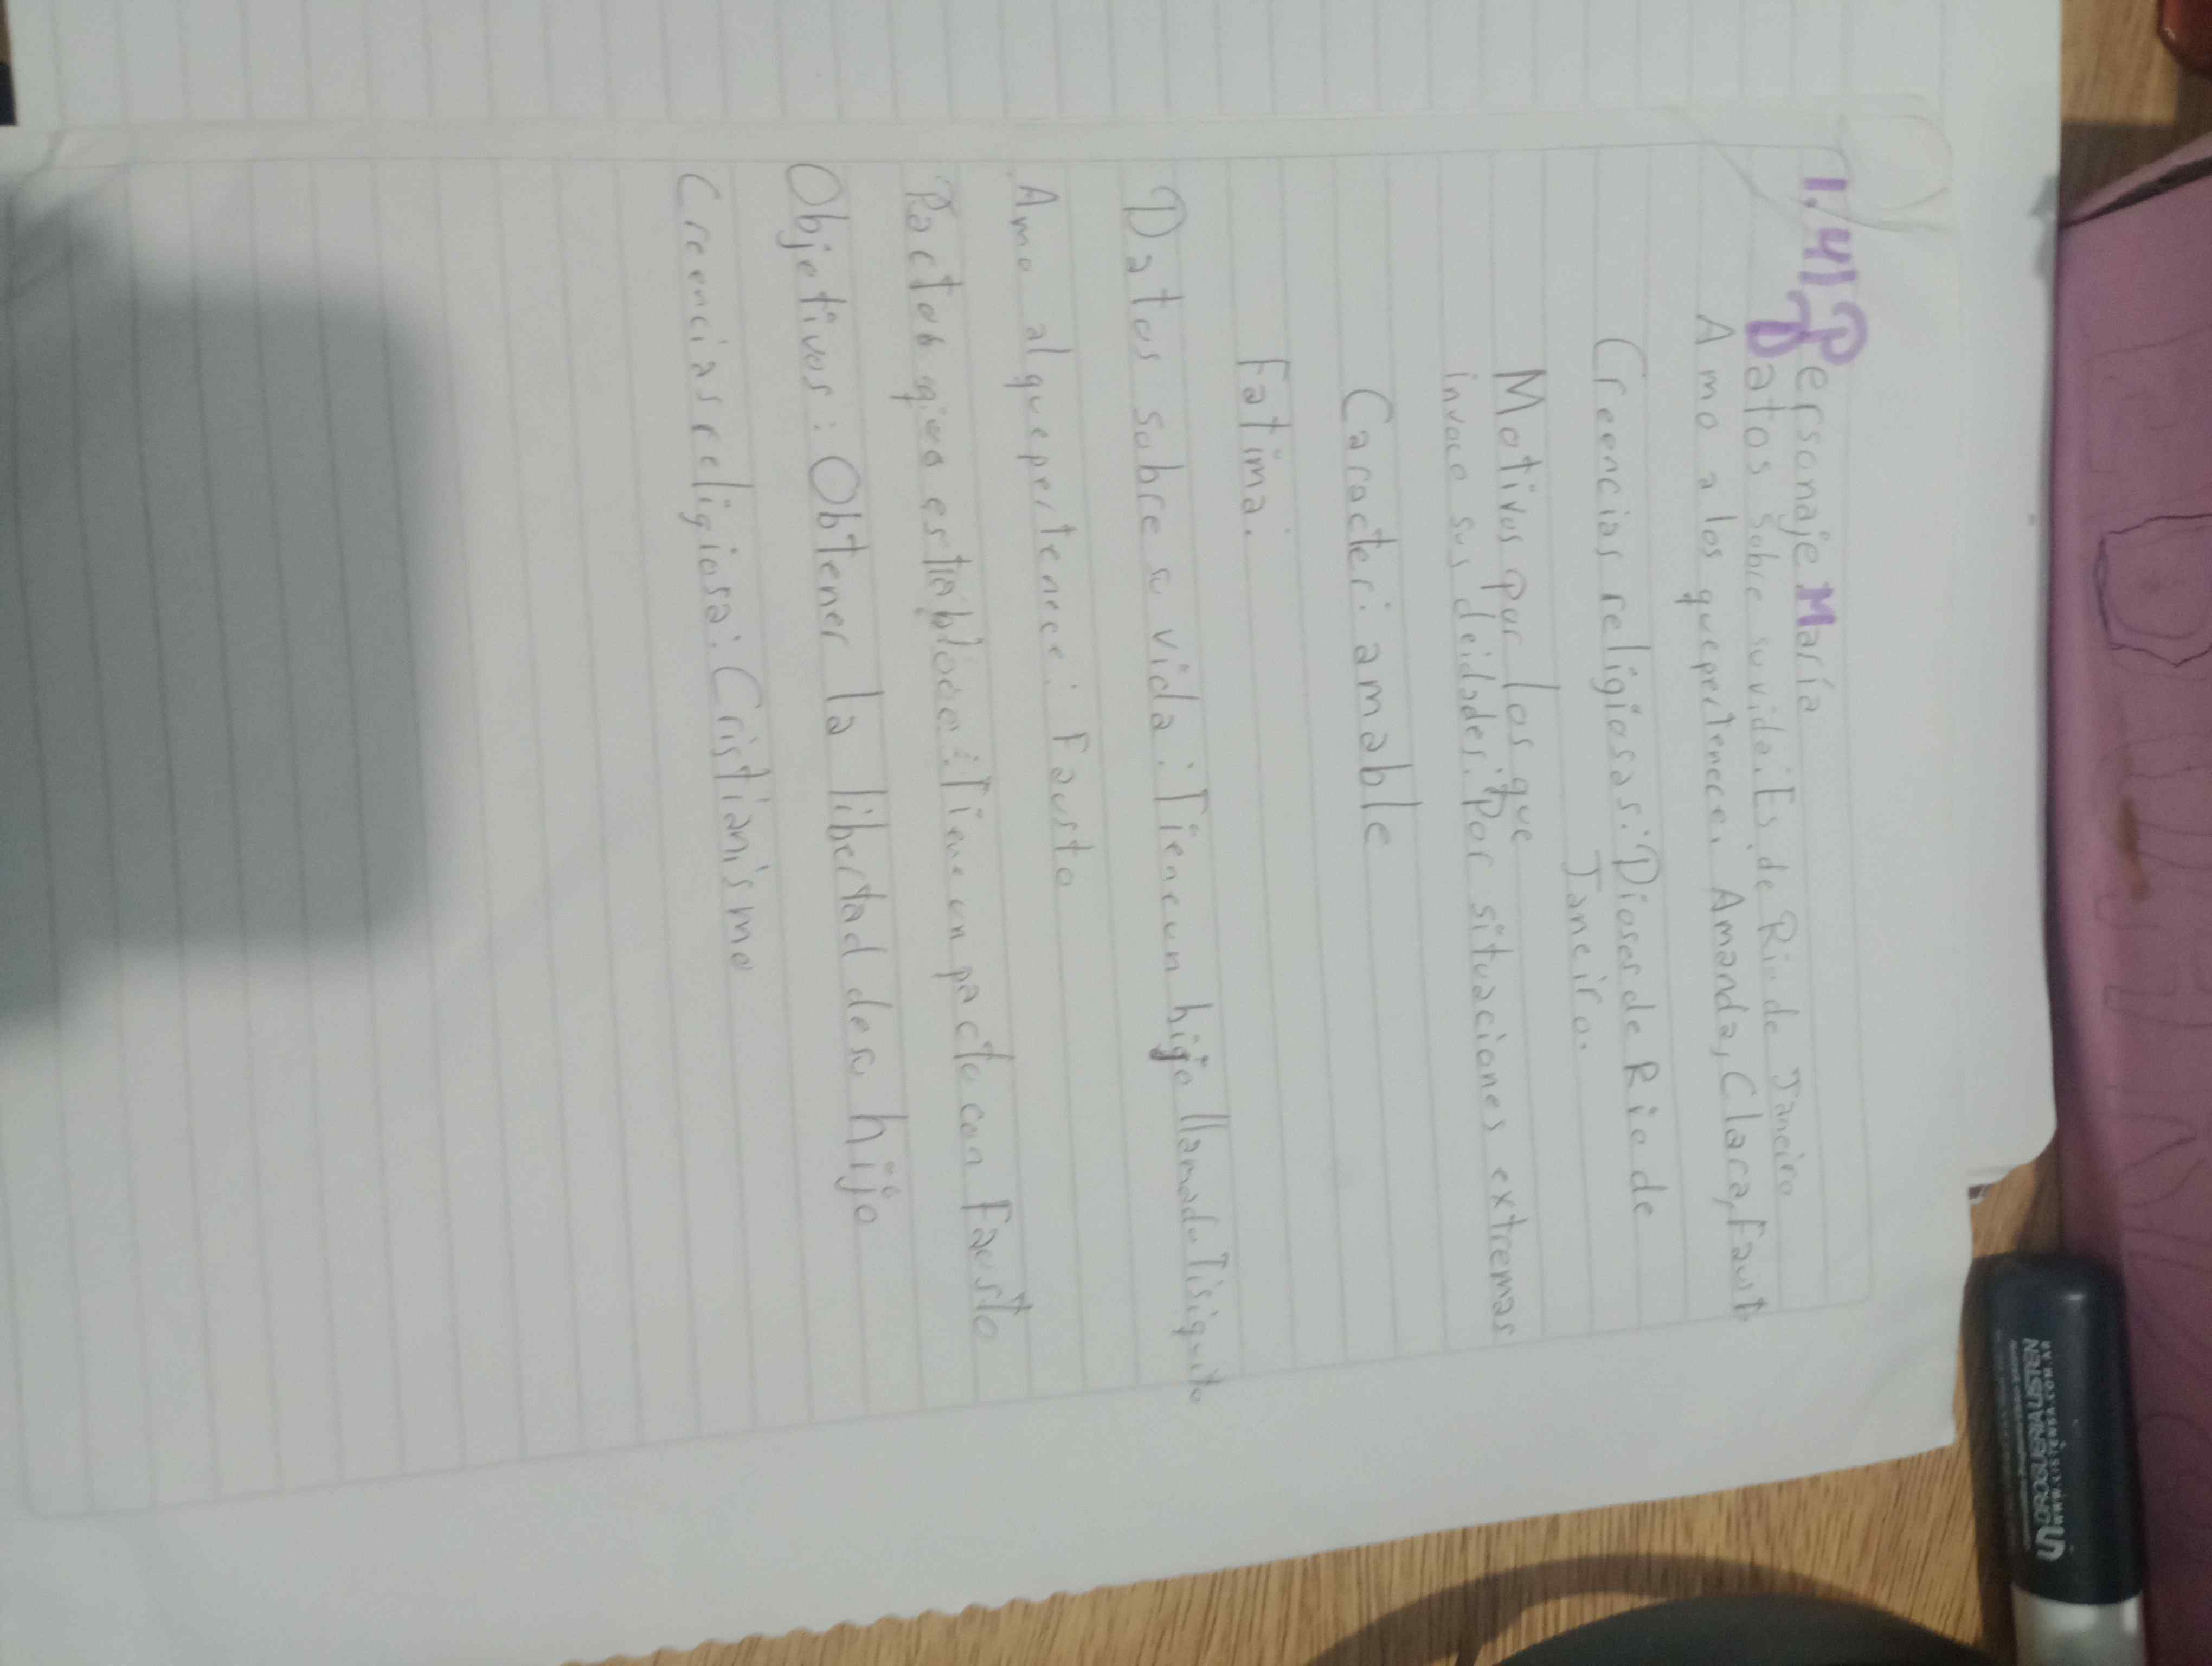 1.41 Personaje María
Datos sobre su vida: Es de Rio de Janeiro
Amo a los que pertenece: Amanda, Clara, Faust
Creencias religiosas: Dioses de Rio de
Janeiro.
Motivos por los que
invoce sus deidades: Por situaciones extremas
Caracter: amable
Fatima.
Datos sobre su vida: Tiene un higo llamado Tisiquito
Amo al que pertenece: Fausto
Pactos que establece: Tiene un pacto con Fausto
Objetivos: Obtener la libertad de su hijo
Creencias religiosa: Cristianismo